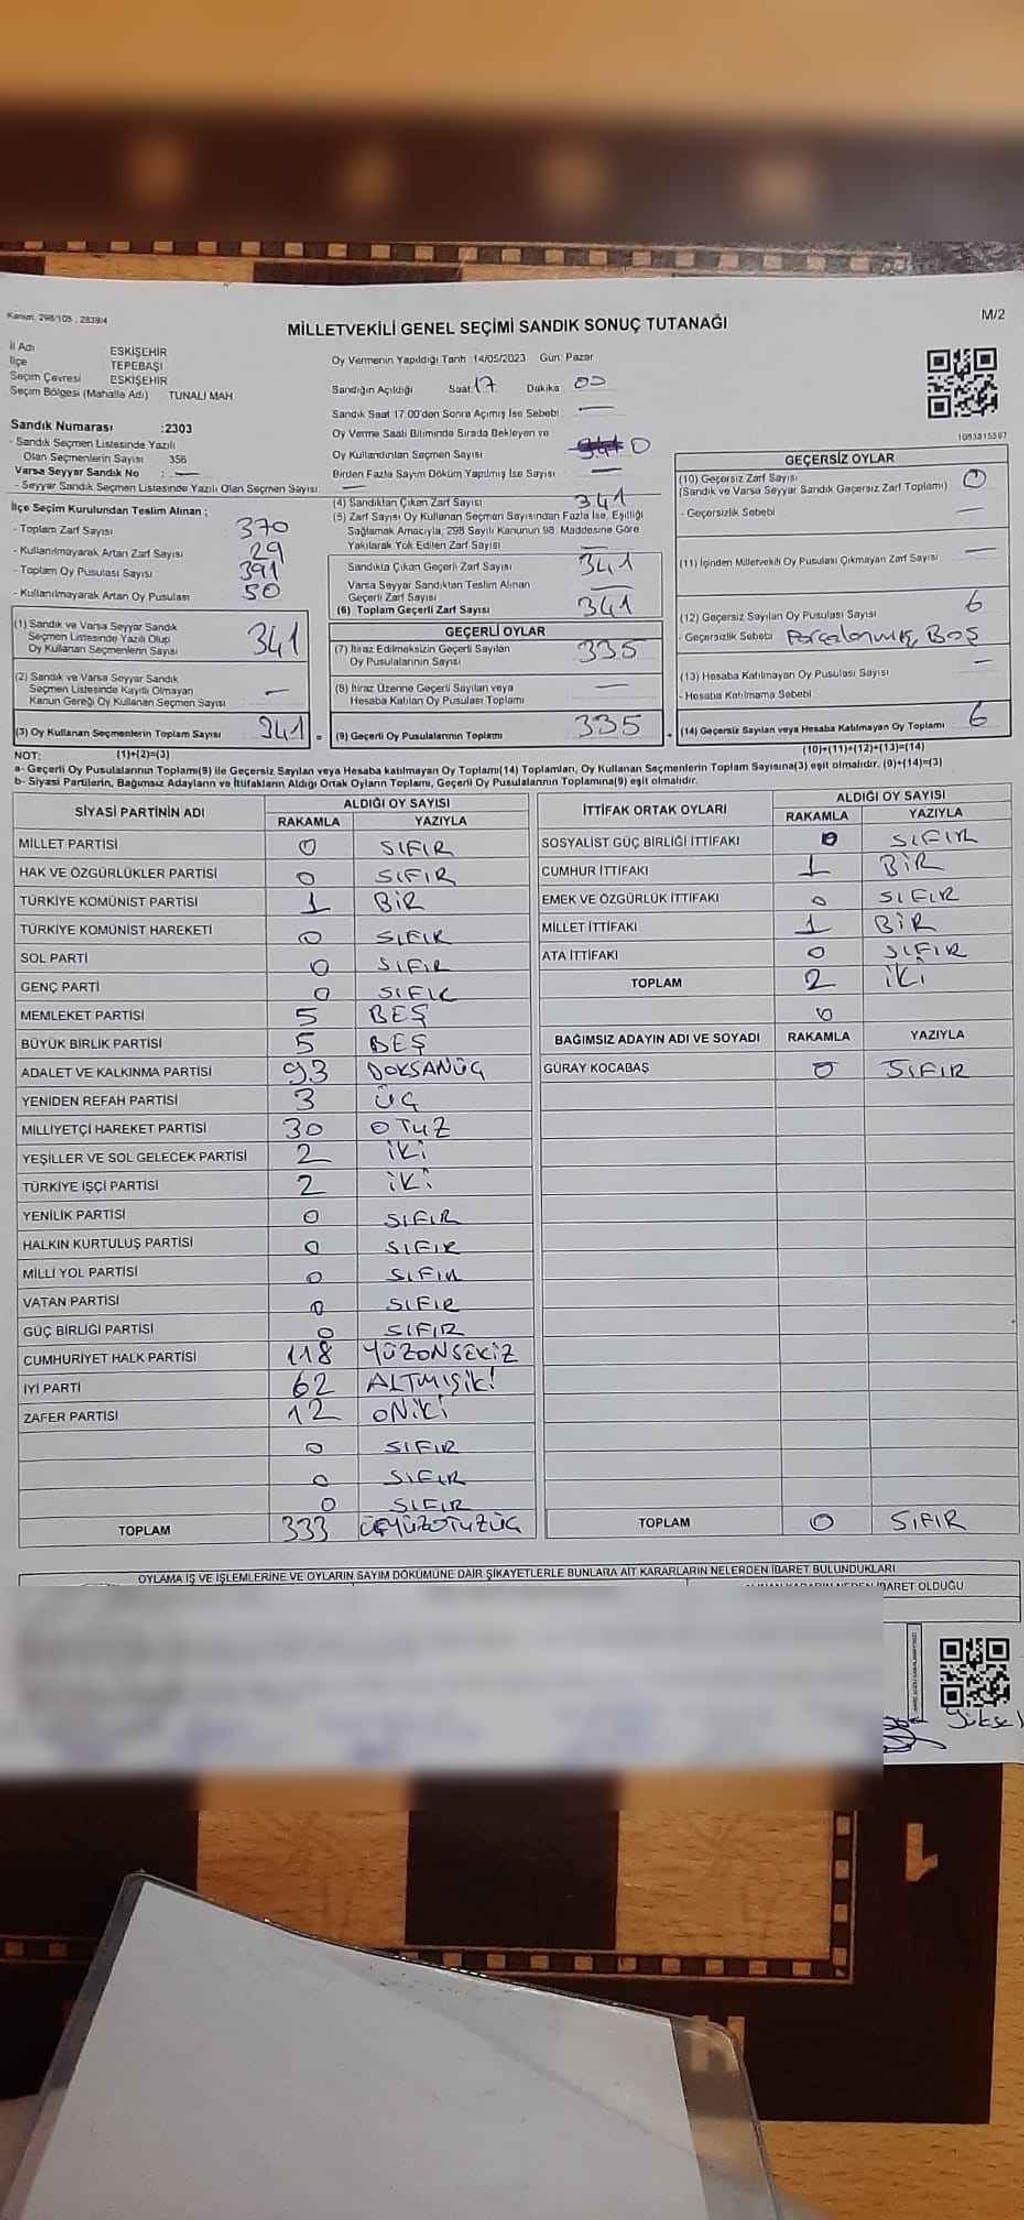 Kanun: 298/105 , 2839/4
M/2
MİLLETVEKİLİ GENEL SEÇİMİ SANDIK SONUÇ TUTANAĞI
İl Adı ESKİŞEHİR
İlçe TEPEBAŞI
Seçim Çevresi ESKİŞEHİR
Seçim Bölgesi (Mahalle Adı) TUNALI MAH
Sandık Numarası :2303
- Sandık Seçmen Listesinde Yazılı
Olan Seçmenlerin Sayısı 356
Varsa Seyyar Sandık No : —
- Seyyar Sandık Seçmen Listesinde Yazılı Olan Seçmen Sayısı
Oy Vermenin Yapıldığı Tarih :14/05/2023 Gün: Pazar
Sandığın Açıldığı Saat 17 Dakika 00
Sandık Saat 17:00'den Sonra Açmış İse Sebebi —
Oy Verme Saati Bitiminde Sırada Bekleyen ve
Oy Kullandırılan Seçmen Sayısı 0
Birden Fazla Sayım Döküm Yapılmış İse Sayısı —
1083815587
İlçe Seçim Kurulundan Teslim Alınan ;
- Toplam Zarf Sayısı 370
- Kullanılmayarak Artan Zarf Sayısı 29
- Toplam Oy Pusulası Sayısı 391
- Kullanılmayarak Artan Oy Pusulası 50
(1) Sandık ve Varsa Seyyar Sandık
Seçmen Listesinde Yazılı Olup
Oy Kullanan Seçmenlerin Sayısı 341
(2) Sandık ve Varsa Seyyar Sandık
Seçmen Listesinde Kayıtlı Olmayan
Kanun Gereği Oy Kullanan Seçmen Sayısı —
(3) Oy Kullanan Seçmenlerin Toplam Sayısı 341 =
(4) Sandıktan Çıkan Zarf Sayısı 341
(5) Zarf Sayısı Oy Kullanan Seçmen Sayısından Fazla İse, Eşitliği
Sağlamak Amacıyla, 298 Sayılı Kanunun 98. Maddesine Göre
Yakılarak Yok Edilen Zarf Sayısı —
Sandıkta Çıkan Geçerli Zarf Sayısı 341
Varsa Seyyar Sandıktan Teslim Alınan
Geçerli Zarf Sayısı —
(6) Toplam Geçerli Zarf Sayısı 341
GEÇERLİ OYLAR
(7) İtiraz Edilmeksizin Geçerli Sayılan
Oy Pusulalarının Sayısı 335
(8) İtiraz Üzerine Geçerli Sayılan veya
Hesaba Katılan Oy Pusulası Toplamı —
(9) Geçerli Oy Pusulalarının Toplamı 335
GEÇERSİZ OYLAR
(10) Geçersiz Zarf Sayısı
(Sandık ve Varsa Seyyar Sandık Geçersiz Zarf Toplamı) 0
- Geçersizlik Sebebi —
(11) İçinden Milletvekili Oy Pusulası Çıkmayan Zarf Sayısı —
(12) Geçersiz Sayılan Oy Pusulası Sayısı 6
- Geçersizlik Sebebi Parçalanmış, BOŞ
(13) Hesaba Katılmayan Oy Pusulası Sayısı —
- Hesaba Katılmama Sebebi
(14) Geçersiz Sayılan veya Hesaba Katılmayan Oy Toplamı 6
NOT: (1)+(2)=(3)
(10)+(11)+(12)+(13)=(14)
a- Geçerli Oy Pusulalarının Toplamı(9) ile Geçersiz Sayılan veya Hesaba katılmayan Oy Toplamı(14) Toplamları, Oy Kullanan Seçmenlerin Toplam Sayısına(3) eşit olmalıdır. (9)+(14)=(3)
b- Siyasi Partilerin, Bağımsız Adayların ve İttifakların Aldığı Ortak Oyların Toplamı, Geçerli Oy Pusulalarının Toplamına(9) eşit olmalıdır.
SİYASİ PARTİNİN ADI ALDIĞI OY SAYISI
RAKAMLA YAZIYLA
MİLLET PARTİSİ 0 SIFIR
HAK VE ÖZGÜRLÜKLER PARTİSİ 0 SIFIR
TÜRKİYE KOMÜNİST PARTİSİ 1 BİR
TÜRKİYE KOMÜNİST HAREKETİ 0 SIFIR
SOL PARTİ 0 SIFIR
GENÇ PARTİ 0 SIFIR
MEMLEKET PARTİSİ 5 BEŞ
BÜYÜK BİRLİK PARTİSİ 5 BEŞ
ADALET VE KALKINMA PARTİSİ 93 DOKSANÜÇ
YENİDEN REFAH PARTİSİ 3 ÜÇ
MİLLİYETÇİ HAREKET PARTİSİ 30 OTUZ
YEŞİLLER VE SOL GELECEK PARTİSİ 2 İKİ
TÜRKİYE İŞÇİ PARTİSİ 2 İKİ
YENİLİK PARTİSİ 0 SIFIR
HALKIN KURTULUŞ PARTİSİ 0 SIFIR
MİLLİ YOL PARTİSİ 0 SIFIR
VATAN PARTİSİ 0 SIFIR
GÜÇ BİRLİĞİ PARTİSİ 0 SIFIR
CUMHURİYET HALK PARTİSİ 118 YÜZONSEKİZ
İYİ PARTİ 62 ALTMIŞİKİ
ZAFER PARTİSİ 12 ONİKİ
0 SIFIR
0 SIFIR
0 SIFIR
TOPLAM 333 ÜÇYÜZOTUZÜÇ
İTTİFAK ORTAK OYLARI ALDIĞI OY SAYISI
RAKAMLA YAZIYLA
SOSYALİST GÜÇ BİRLİĞİ İTTİFAKI 0 SIFIR
CUMHUR İTTİFAKI 1 BİR
EMEK VE ÖZGÜRLÜK İTTİFAKI 0 SIFIR
MİLLET İTTİFAKI 1 BİR
ATA İTTİFAKI 0 SIFIR
TOPLAM 2 İKİ
BAĞIMSIZ ADAYIN ADI VE SOYADI RAKAMLA YAZIYLA
GÜRAY KOCABAŞ 0 SIFIR
TOPLAM 0 SIFIR
OYLAMA İŞ VE İŞLEMLERİNE VE OYLARIN SAYIM DÖKÜMÜNE DAİR ŞİKAYETLERLE BUNLARA AİT KARARLARIN NELERDEN İBARET BULUNDUKLARI
İBARET OLDUĞU
Yüksel